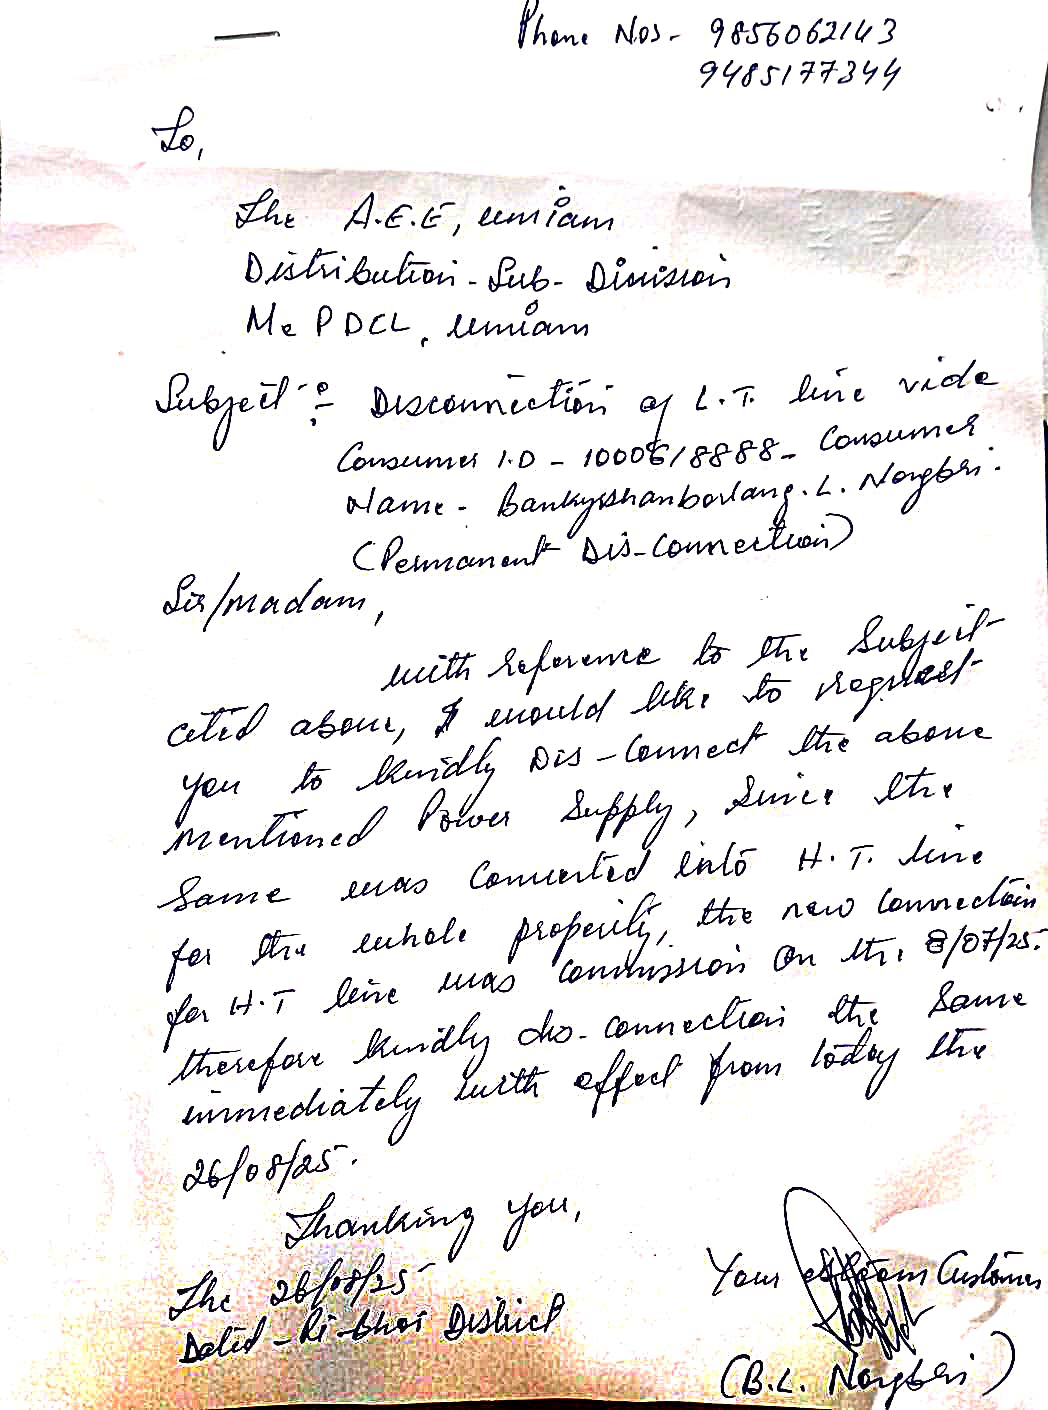 Phone Nos- 9856062143
9485177344
To,
The A.E.E, umiam
Distribution-Sub-Division
MePDCL, umiam
Subject :- Disconnection of L.T. line vide
Consumer I.D - 1000618888- Consumer
Name - Bankyrshanborlang. L. Nongbri.
(Permanent Dis-Connection)
Sir/madam,
with reference to the Subject
cited above, I would like to request
you to kindly Dis-Connect the above
mentioned Power Supply, Since the
Same was Converted into H.T. line
for the whole property, the new Connection
for H.T line was Commission on the 8/07/25.
therefore kindly dis-connection the Same
immediately with effect from today the
26/08/25.
Thanking you,
The 26/08/25
Dated - Ri-bhoi District
Your esteem Customer
(B.L. Nongbri)